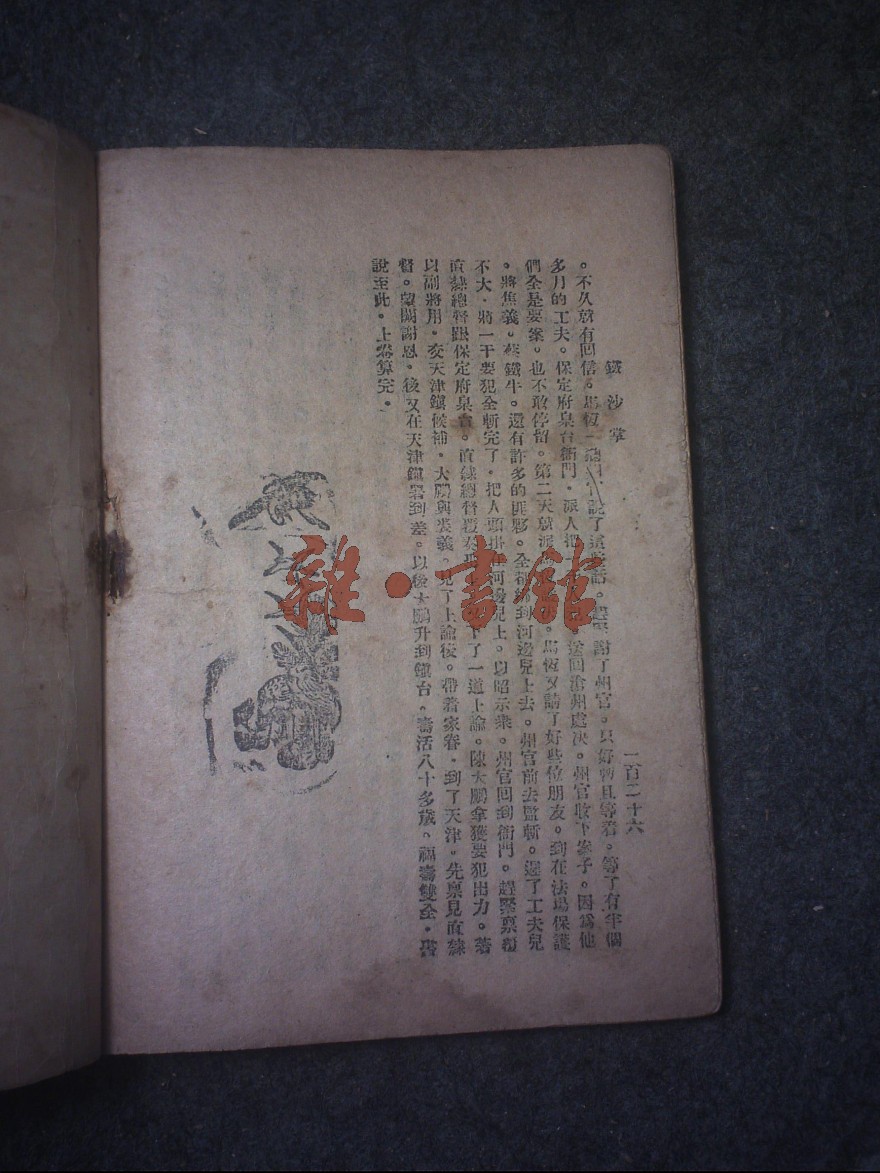 鐵沙掌
二百二十六
。不久就有回信。馬恆一聽州官說了這些話。趕緊謝了州官。只好暫且等着。等了有半個
多月的工夫。保定府臬台衙門。派人把 送回滄州處决。州官收下案子。因爲他
們全是要案。也不敢停留。第二天就派 。馬恆又請了好些位朋友。到在法塲保護
。將焦義。蔡鐵牛。還有許多的匪夥。全都綁到河邊兒上去。州官前去監斬。過了工夫兒
不大。將一干要犯全斬完了。把人頭掛在河邊兒上。以昭示衆。州官回到衙門。趕緊禀報
直隸總督跟保定府臬台。直隸總督覆奏 下了一道上諭。陳大鵬拿獲要犯出力。著
以副將用。交天津鎮候補。大鵬與裴義。見了上諭後。帶着家眷。到了天津。先禀見直隸
督。望闕謝恩。後又在天津鎮署到差。以後大鵬升到鎮台。壽活八十多歲。福壽雙全。書
說至此。上卷算完。
雜·書館